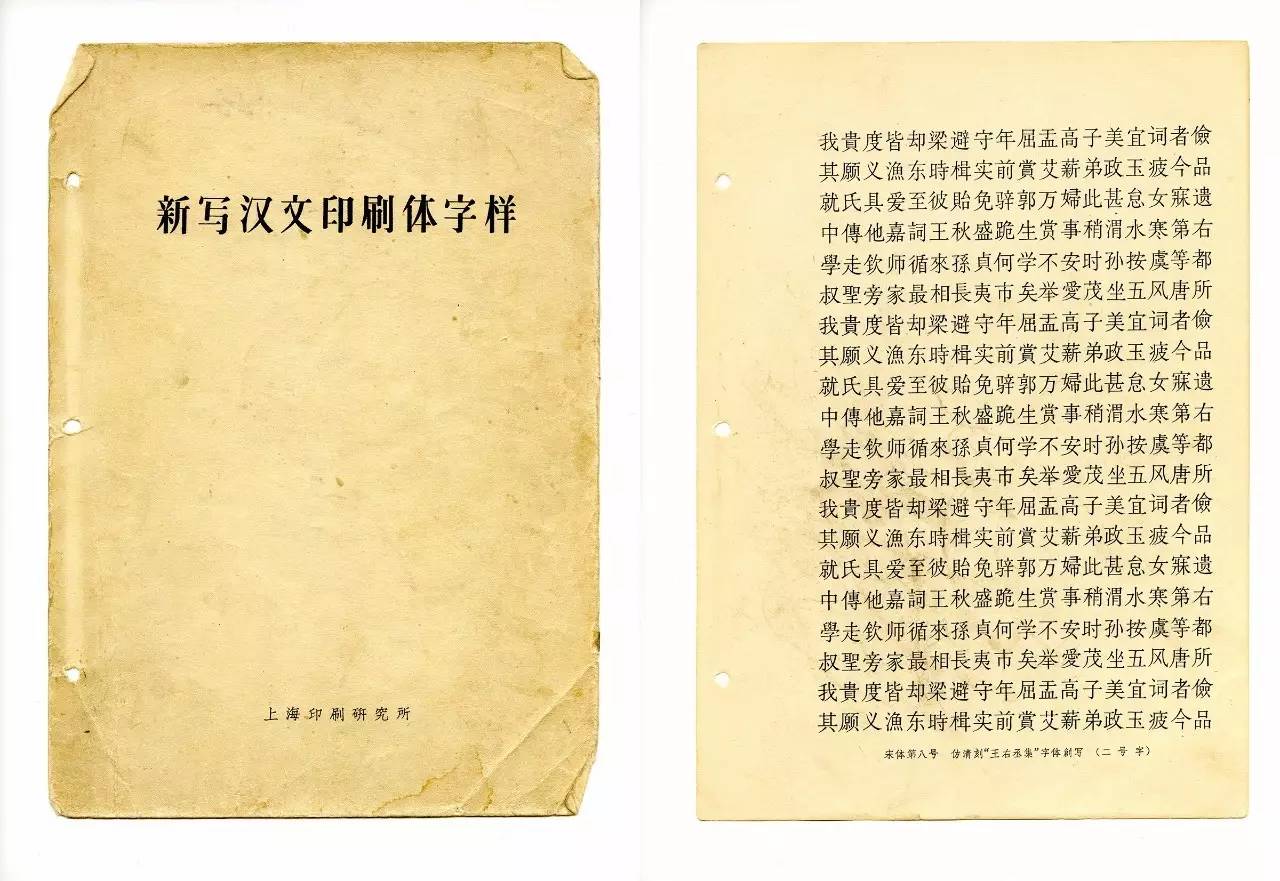 新写汉文印刷体字样
上海印刷研究所
我貴度皆却梁避守年屈盂高子美宜词者儉
其愿义漁东時楫实前賞艾薪弟政玉疲今品
就氏具爱至彼貽免骍郭万婦此甚怠女寐遗
中傳他嘉詞王秋盛跪生赏事稍渭水寒第右
學走钦师循來孫貞何学不安时孙按虞等都
叔聖旁家最相長夷市矣举愛茂坐五风唐所
我貴度皆却梁避守年屈盂高子美宜词者儉
其愿义漁东時楫实前賞艾薪弟政玉疲今品
就氏具爱至彼貽免骍郭万婦此甚怠女寐遗
中傳他嘉詞王秋盛跪生赏事稍渭水寒第右
學走钦师循來孫貞何学不安时孙按虞等都
叔聖旁家最相長夷市矣举愛茂坐五风唐所
我貴度皆却梁避守年屈盂高子美宜词者儉
其愿义漁东時楫实前賞艾薪弟政玉疲今品
就氏具爱至彼貽免骍郭万婦此甚怠女寐遗
中傳他嘉詞王秋盛跪生赏事稍渭水寒第右
學走钦师循來孫貞何学不安时孙按虞等都
叔聖旁家最相長夷市矣举愛茂坐五风唐所
我貴度皆却梁避守年屈盂高子美宜词者儉
其愿义漁东時楫实前賞艾薪弟政玉疲今品
宋体第八号 仿清刻“王右丞集”字体創写 （二号字）